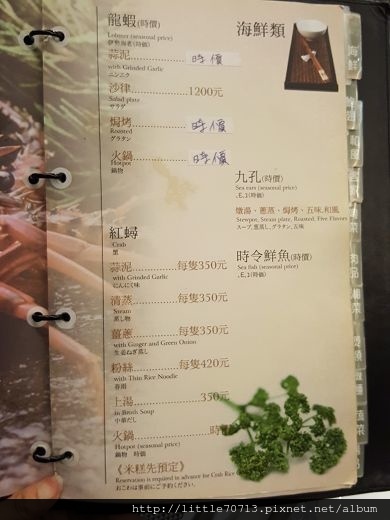 龍蝦(時價)
Lobster (seasonal price)
伊勢海老(時価)
蒜泥............時價
with Grinded Garlic
ニンニク
沙律............1200元
Salad plate
サラダ
焗烤............時價
Roasted
グラタン
火鍋............時價
Hotpot
鍋物
紅蟳
Crab
蟹
蒜泥............每隻350元
with Grinded Garlic
にんにく味
清蒸............每隻350元
Steam
蒸し物
薑蔥............每隻350元
with Ginger and Green Onion
生姜ねぎ蒸し
粉絲............每隻420元
with Thin Rice Noodle
春雨
上湯............350元
in Broth Soup
中華だし
火鍋............時
Hotpot (seasonal price)
鍋物 時価
《米糕先預定》
Reservation is required in advance for Crab Rice
おこわは事前にご予約ください。
海鮮類
九孔(時價)
Sea ears (seasonal price)
燉湯、蔥蒸、焗烤、五味、和風
Stewpot, Steam plate, Roasted, Five Flavors
スープ,葱蒸し,グラタン,五味
時令鮮魚(時價)
Sea fish (seasonal price)
海鮮
http://little70713.pixnet.net/album